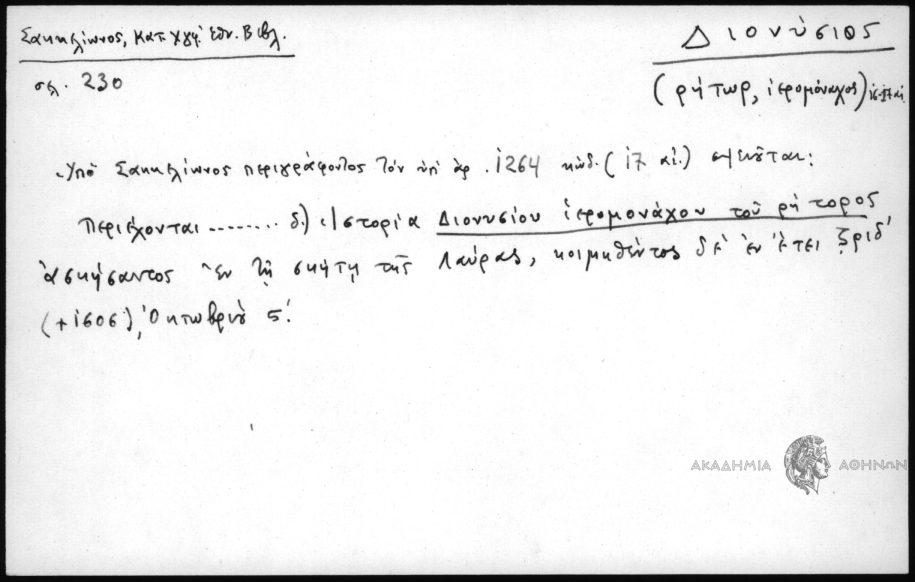 Σακκελίωνος, Κατ. χγφ. Ἐθν. Βιβλ.
σελ. 230
Διονύσιος
(ρήτωρ, ἱερομόναχος) 16-17 αἰ.
Ὑπὸ Σακκελίωνος περιγράφοντος τὸν ὑπ' ἀρ. 1264 κώδ. (17 αἰ.) σημειοῦται:
Περιέχονται ........ δ.) Ἱστορία Διονυσίου ἱερομονάχου τοῦ ρήτορος
ἀσκήσαντος ἐν τῇ σκήτῃ τῆς Λαύρας, κοιμηθέντος δὲ ἐν ἔτει ζριδʹ
(+1606), Ὀκτωβρίῳ ϛʹ.
ΑΚΑΔΗΜΙΑ ΑΘΗΝΩΝ